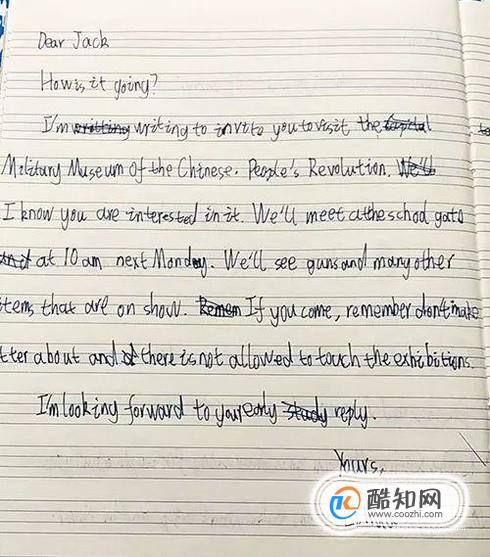 Dear Jack
How is it going?
I'm writing to invite you to visit the
Military Museum of the Chinese. People's Revolution.
I know you are interested in it. We'll meet at the school gate
at 10 am next Monday. We'll see guns and many other
items that are on show. If you come, remember don't make
tter about and there is not allowed to touch the exhibitions.
I'm looking forward to your early reply.
Yours,
酷知网
www.coozhi.com